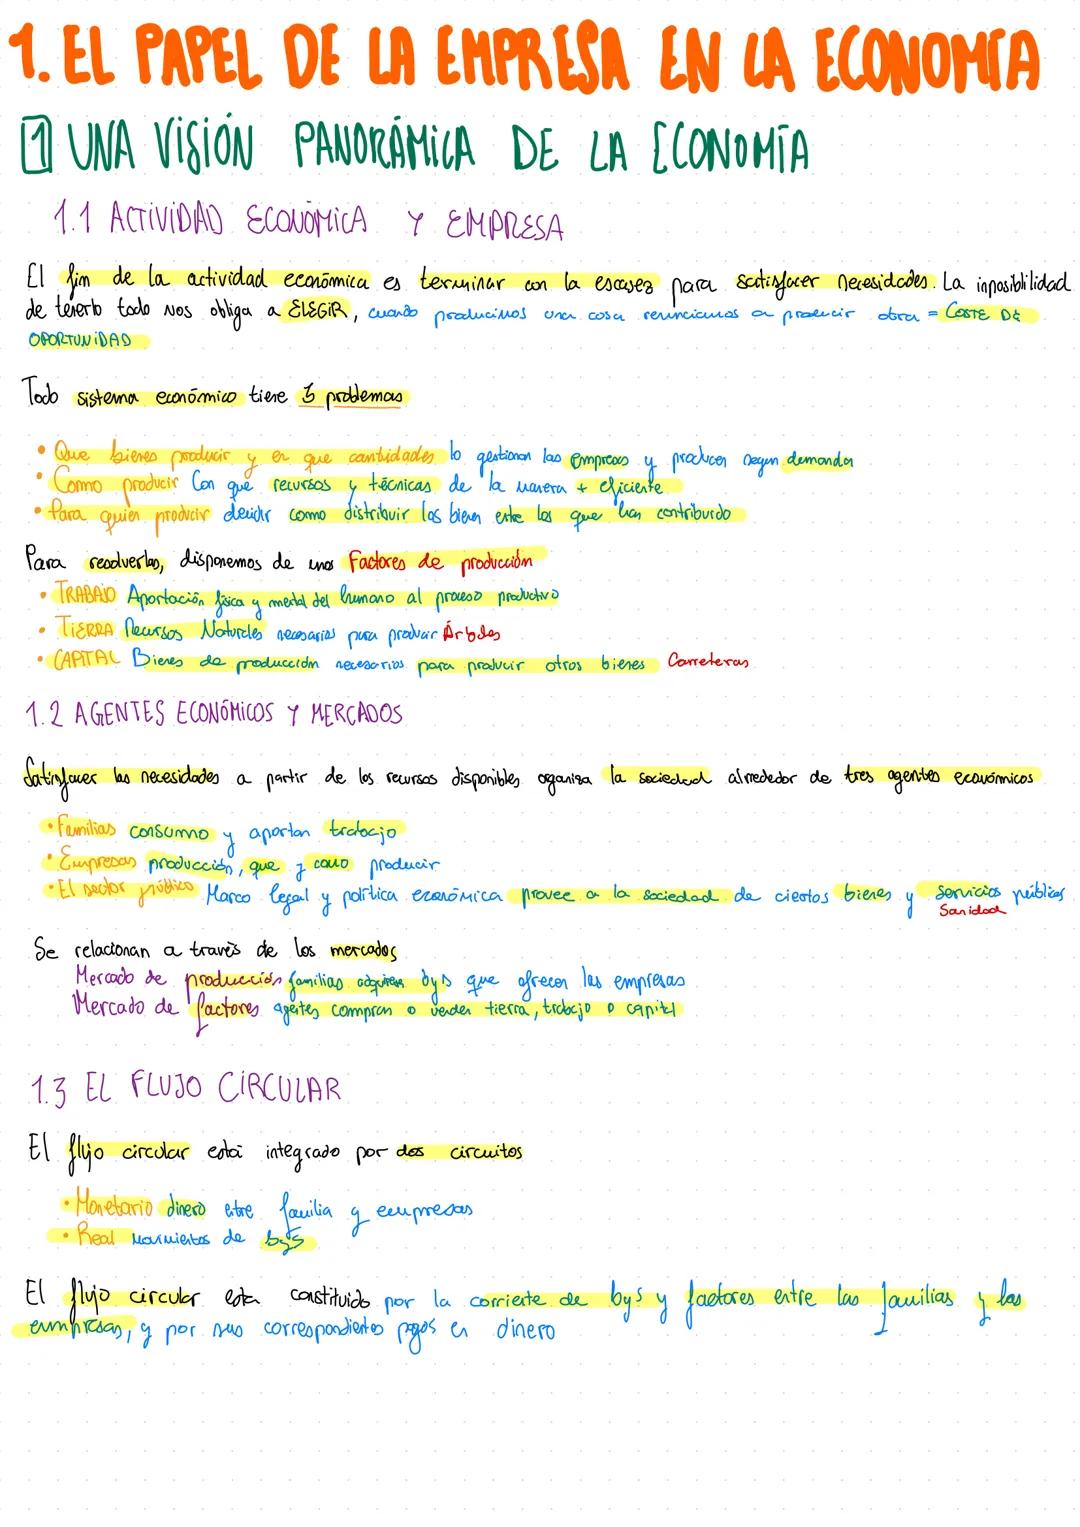 1. EL PAPEL DE LA EMPRESA EN LA ECONOMÍA
1 UNA VISIÓN PANORÁMICA DE LA ECONOMÍA
1.1 ACTIVIDAD ECONÓMICA Y EMPRESA
El fin de la actividad económica es terminar con la escasez para satisfacer necesidades. La inposiblilidad
de tenerlo todo nos obliga a ELEGIR, cuando producimos una cosa renunciamos a producir otra = COSTE DE
OPORTUNIDAD
Todo sistema económico tiene 3 problemas
• Que bienes producir y en que cantidades lo gestionan las empresas y producen segun demanda
• Como producir Con que recursos y técnicas de la manera + eficiente
• Para quien producir decidir como distribuir los bienes entre los que han contribuido
Para resolverlas, disponemos de unos Factores de producción
• TRABAJO Aportación física y mental del humano al proceso productivo
• TIERRA Recursos Naturales necesarias para producir Árboles
• CAPITAL Bienes de producción necesarios para producir otros bienes Carreteras
1.2 AGENTES ECONÓMICOS Y MERCADOS
Satisfacer las necesidades a partir de los recursos disponibles, organiza la sociedad alrrededor de tres agentes económicos
• Familias consumo y aportan trabajo
• Empresas producción, que y como producir
• El sector público Marco legal y política económica provee a la sociedad de ciertos bienes y servicios públicos
Sanidad
Se relacionan a través de los mercados
Mercado de producción familias adquieren bys que ofrecen las empresas
Mercado de factores agentes compran o venden tierra, trabajo o capital
1.3 EL FLUJO CIRCULAR
El flujo circular está integrado por dos circuitos
• Monetario dinero entre familia y empresas
• Real movimientos de bys
El flujo circular esta constituido por la corriente de bys y factores entre las familias y las
empresas, y por sus correspondientes pagos en dinero